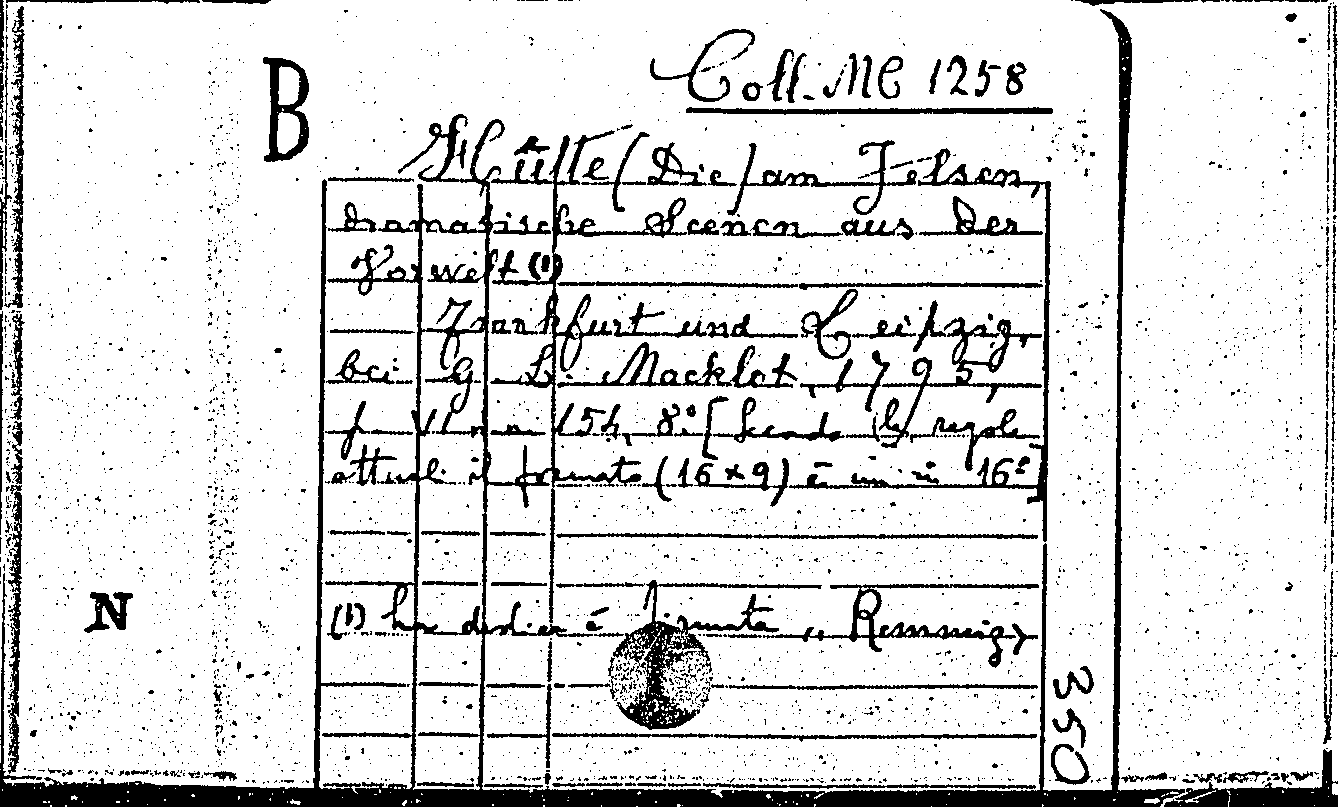 Coll. MC 1258
B
Hütte (Die) am Felsen,
dramatische Scenen aus der
Vorwelt (1)
Frankfurt und Leipzig,
bei G. L. Macklot, 1795,
p. VI n.n. 154, 8.° [Secondo le regole
attuali il formato (16 x 9) è un in 16°]
N
(1) la dedica è firmata „ Remmig
350